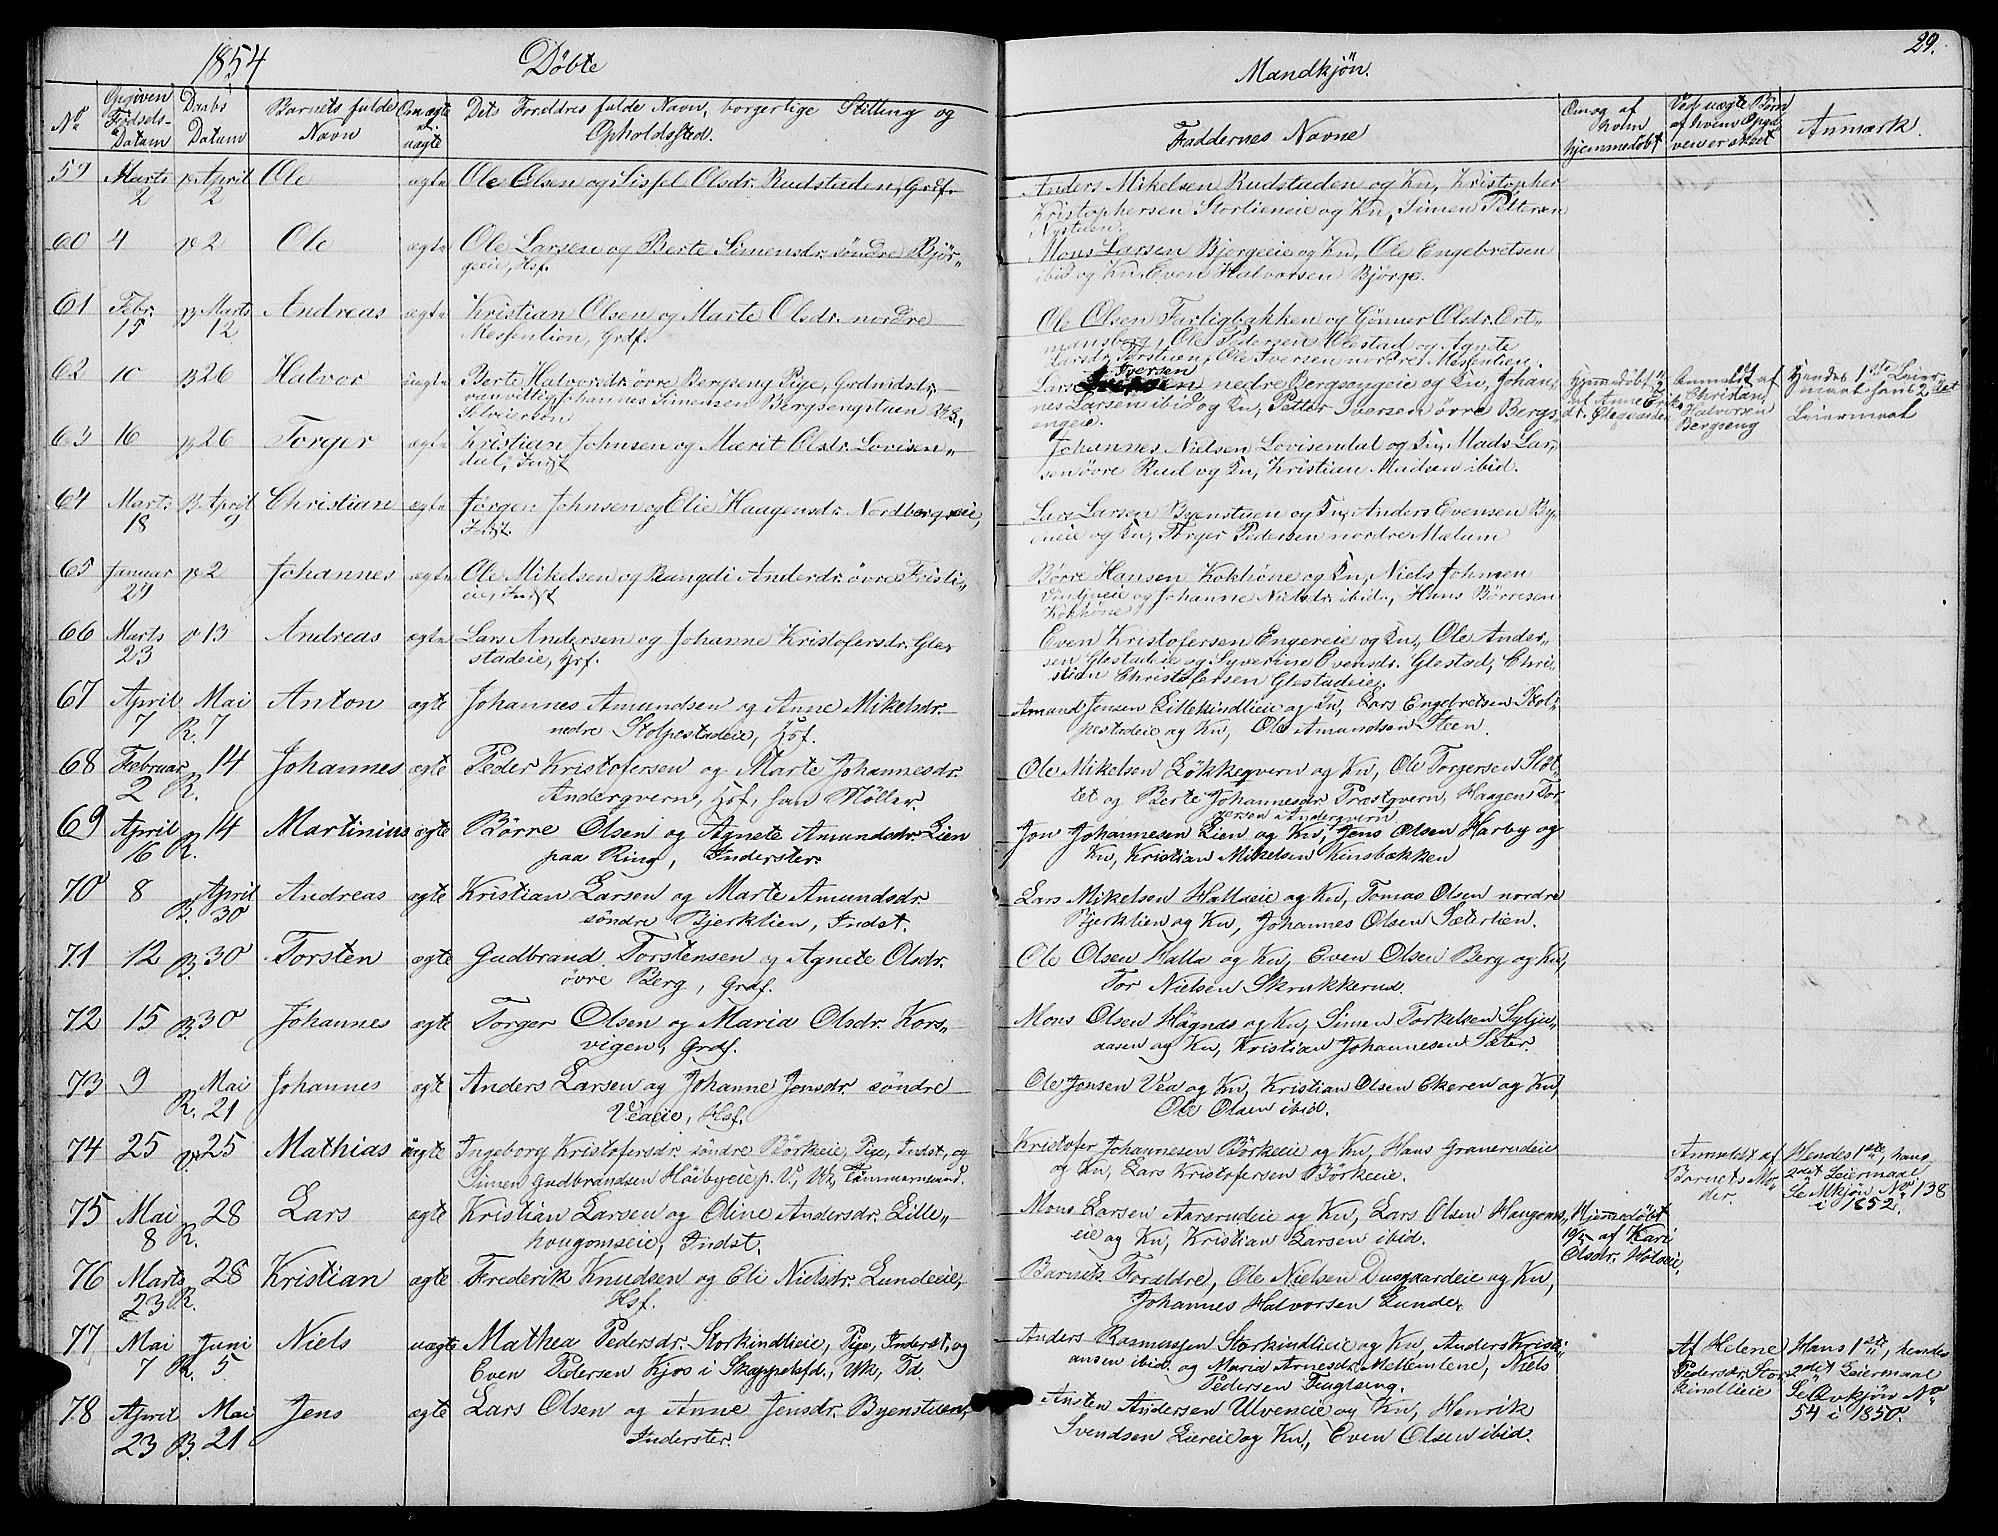 1854 Döbte
Mandkjön. 29.
No Opgiven Födsels-Datum Daabs Datum Barnets fulde Navn Om ægte el. uægte Dets Forældres fulde Navn, borgerlige Stilling og Opholdssted.
Faddernes Navne Om og af hvem hjemmedöbt Ved uægte Börn af hvem Opgiven er skeet Anmærk.
59 Marts 2 April 2 Ole ægte Ole Olsen og Sissel Olsdr. Rudstuden, Grdf.
Anders Mikelsen Rudstuden og Kn, Kristopher
Kristophersen Storlieneie og Kn, Simen Pettersen
Nystuen.
60 4 2 Ole ægte Ole Larsen og Berte Simensdr. söndre Björ-
geeie, Hsf.
Mons Larsen Bjørgeeie og Kn, Ole Engebretsen
ibid og Kn, Even Halvorsen Bjørge.
61 Febr. 15 B Marts 12 Andreas ægte Kristian Olsen og Marte Olsdr. nordre
Messenlien, Grdf.
Ole Olsen Farligbakken og Gönner Olsdr. Ert-
mansberg, Ole Pedersen Alestad og Agnete
Larsdr. Torstuen, Ole Iversen nordre Messenlien.
62 10 B 26 Halvor uægte Berte Halvorsdr. övre Bergseng Pige, Grdmdsdr,
vanvittig, Johannes Simensen Bergsengstuen
Lars Iversen nedre Bergsengeie og Kn, Johan-
nes Larsen ibid og Kn, Petter Iversen övre Bergs-
engeie.
Hjemmedöbt af Anne
Anmeldt af Christian Halvorsen Bergseng
Hendes 1ste Leiermaal hans 2det Leiermaal
63 16 B 26 Torger ægte Kristian Johnsen og Marit Olsdr. Lovisen-
dal, Indst
Johannes Nielsen Lovisendal og Kn, Mads Lar-
sen övre Rud og Kn, Kristian Madsen ibid.
64 Marts 18 B April 9 Christian ægte Jørgen Johnsen og Elie Haagensdr. Nordbergeie,
Indst.
Lars Larsen Byenstuen og Kn, Anders Evensen By-
eneie og Kn, Torger Pedersen nordre Mælum
65 Januar 29 2 Johannes ægte Ole Mikelsen og Rangdi Andersdr. övre Fristi-
eie, Indst
Börre Hansen Koklöne og Kn, Niels Johnsen
og Johanne Nielsdr. ibid., Hans Börresen
Koklöne
66 Marts 23 13 Andreas ægte Lars Andersen og Johanne Kristofersdr. Gle-
stadeie, Hsf.
Even Kristofersen Engereie og Kn, Ole Ander-
sen Glestadeie og Syverine Evensdr. Glestad, Chri-
stian Christofersen Glestadeie.
67 April 7 Mai R. 7 Anton ægte Johannes Amundsen og Anne Mikelsdr.
nedre Stolpestadeie, Hsf.
Amund Jensen Lillekindlieie og Kn, Lars Engebretsen Stol-
pestadeie og Kn, Ole Amundsen Steen.
68 Februar 2 R. 14 Johannes ægte Peder Kristofersen og Marte Johannesdr.
Andergvern, Hsf, han Möller.
Ole Mikelsen Løkkegvern og Kn, Ole Torgersen Slöt-
tet og Berte Johannesdr. Præstgvern, Haagen Tor-
gersen Andergvern
69 April 16 R. 14 Martinius ægte Börre Olsen og Agnete Amundsdr. Lien
paa Ring, Inderster.
Jon Johannesen Lien og Kn, Jens Olsen Harby og
Kn, Kristian Mikelsen Kinsbækken
70 8 B. April 30 Andreas ægte Kristian Larsen og Marte Amundsdr.
söndre Bjerklien, Indst.
Lars Mikelsen Hallaeie og Kn, Tomas Olsen nordre
Bjerklien og Kn, Johannes Olsen Sæterlien.
71 12 B. 30 Torsten ægte Gudbrand Torstensen og Agnete Olsdr.
övre Berg, Grdf.
Ole Olsen Halla og Kn, Even Olsen Berg og Kn,
Tor Nielsen Skrukkerud.
72 15 B. 30 Johannes ægte Torger Olsen og Maria Olsdr. Kors-
vigen, Grdf.
Mons Olsen Högnæs og Kn, Simen Torkelsen Sylju-
aasen og Kn, Kristian Johannesen Sæter.
73 9 R. Mai 21 Johannes ægte Anders Larsen og Johanne Jonsdr. söndre
Veaeie, Hsf.
Ole Jonsen Vea og Kn, Kristian Olsen Ekeren og Kn,
Ole Olsen ibid.
74 25 25 Mathias uægte Ingeborg Kristofersdr. söndre Börkeeie, Pige, Indst, og
Simen Gudbrandsen Höibyeie p. V., Uk, Tömmermand.
Kristofer Johannesen Börkeeie og Kn, Hans Granerudeie
og Kn, Lars Kristofersen Börkeeie.
Anmeldt af Barnets Moder.
Hendes 1ste, hans 2det Leiermaal Se Mkjön No 138 i 1852.
75 Mai 8 R. 28 Lars ægte Kristian Larsen og Oline Andersdr. Lille-
hougomseie, Indst.
Mons Larsen Aarsrudeie og Kn, Lars Olsen Haugoms-
eie og Kn, Kristian Larsen ibid.
Hjemmedöbt 10/5 af Kari Olsdr. Holseie.
76 Marts 23 R. 28 Kristian ægte Frederik Knudsen og Eli Nielsdr. Lundeeie,
Hsf.
Barnets Forældre, Ole Nielsen Dusgaardeie og Kn,
Johannes Halvorsen Lunde.
77 Mai 7 R. Juni 5. Niels uægte Mathea Pedersdr. Storkindlieie, Pige, Inderst, og
Even Pedersen Kjos i Skappelsfd., Uk, Td.
Anders Rasmussen Storkindlieie og Kn, Anders Kristi-
ansen ibid. og Maria Arnesdr. Mellemlene, Niels
Pedersen Tingelseng.
Af Helene Pedersdr. Storkindlieie
Hans 1ste, hendes 2det Leiermaal Se Qvkjön No 54 i 1850.
78 April 23 B. Mai 21 Jens ægte Lars Olsen og Anne Jensdr. Byenstuen,
Inderster.
Ansten Andersen Ulveneie og Kn, Henrik
Svendsen Liereie og Kn, Even Olsen ibid.